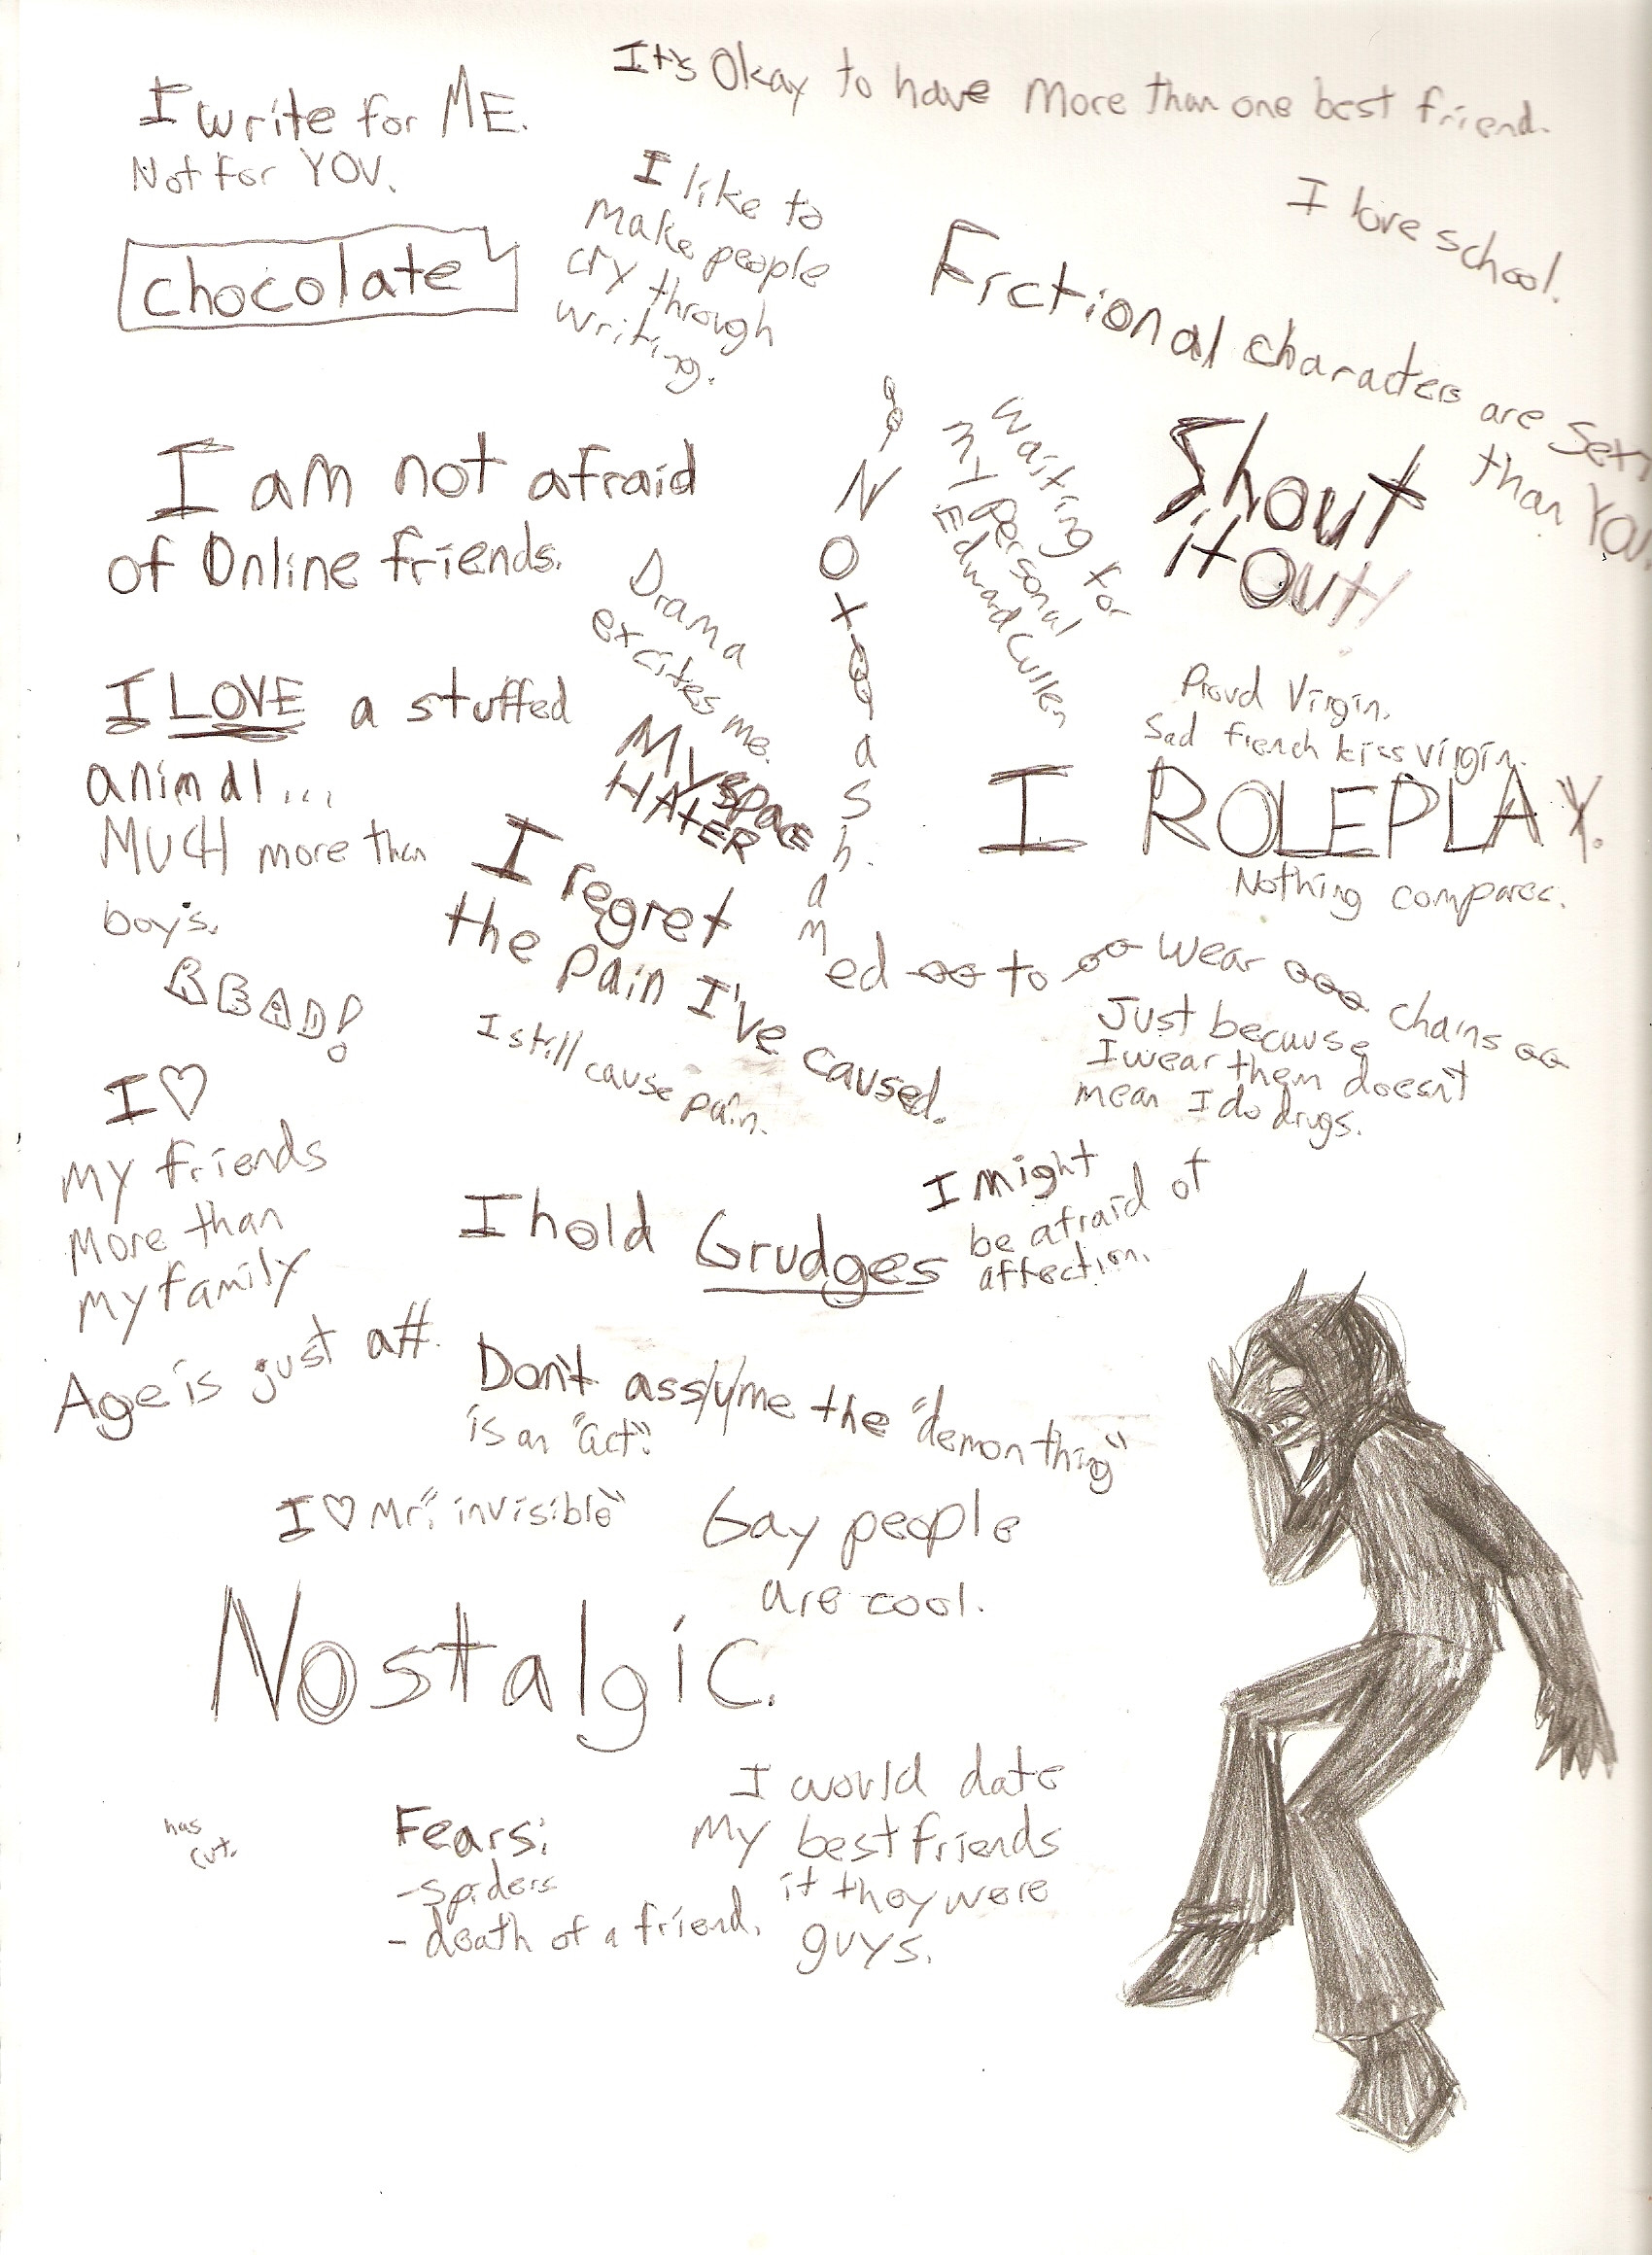 It's Okay to have more than one best friend.
I write for ME.
Not for YOU.
I love school.
I like to
make people
cry through
writing.
chocolate
Fictional characters are
than YOU.
I am not afraid
of Online friends.
NOT
ashamed to wear chains
Just because
I wear them doesn't
mean I do drugs.
Waiting for
my personal
Edward Cullen
Shout
it out!
Drama
excites me.
Myspace
HATER
Proud Virgin.
Sad french kiss virgin.
I ROLEPLAY.
Nothing compares.
I LOVE a stuffed
animal...
MUCH more than
boys.
I regret
the pain I've caused.
I still cause pain.
READ!
I ♡
my friends
more than
my family
I hold Grudges
I might
be afraid of
affection.
Age is just a #.
Don't ass/u/me the "demon thing"
is an "act".
I ♡ Mr. "invisible"
Gay people
are cool.
Nostalgic.
has
cut.
Fears:
-spiders
- death of a friend.
I would date
my best friends
if they were
guys.